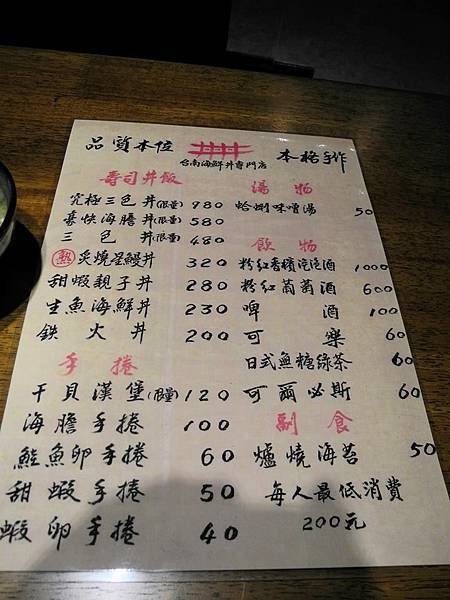 品質本位
台南海鮮丼專門店
本格手作
壽司丼飯
究極三色丼(限量) 980
豪快海膽丼(限量) 580
三色丼(限量) 480
熱 炙燒星鰻丼 320
甜蝦親子丼 280
生魚海鮮丼 230
鉄火丼 200
手捲
干貝漢堡(限量) 120
海膽手捲 100
鮭魚卵手捲 60
甜蝦手捲 50
蝦卵手捲 40
湯物
蛤蜊味噌湯 50
飲物
粉紅香檳泡泡酒 1000
粉紅葡萄酒 600
啤酒 100
可樂 60
日式無糖綠茶 60
可爾必斯 60
副食
爐燒海苔 50
每人最低消費
200元